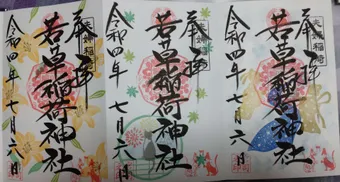 奉拝
若草稲荷神社
令和四年七月六日
奉拝
若草稲荷神社
令和四年七月六日
奉拝
若草稲荷神社
令和四年七月六日